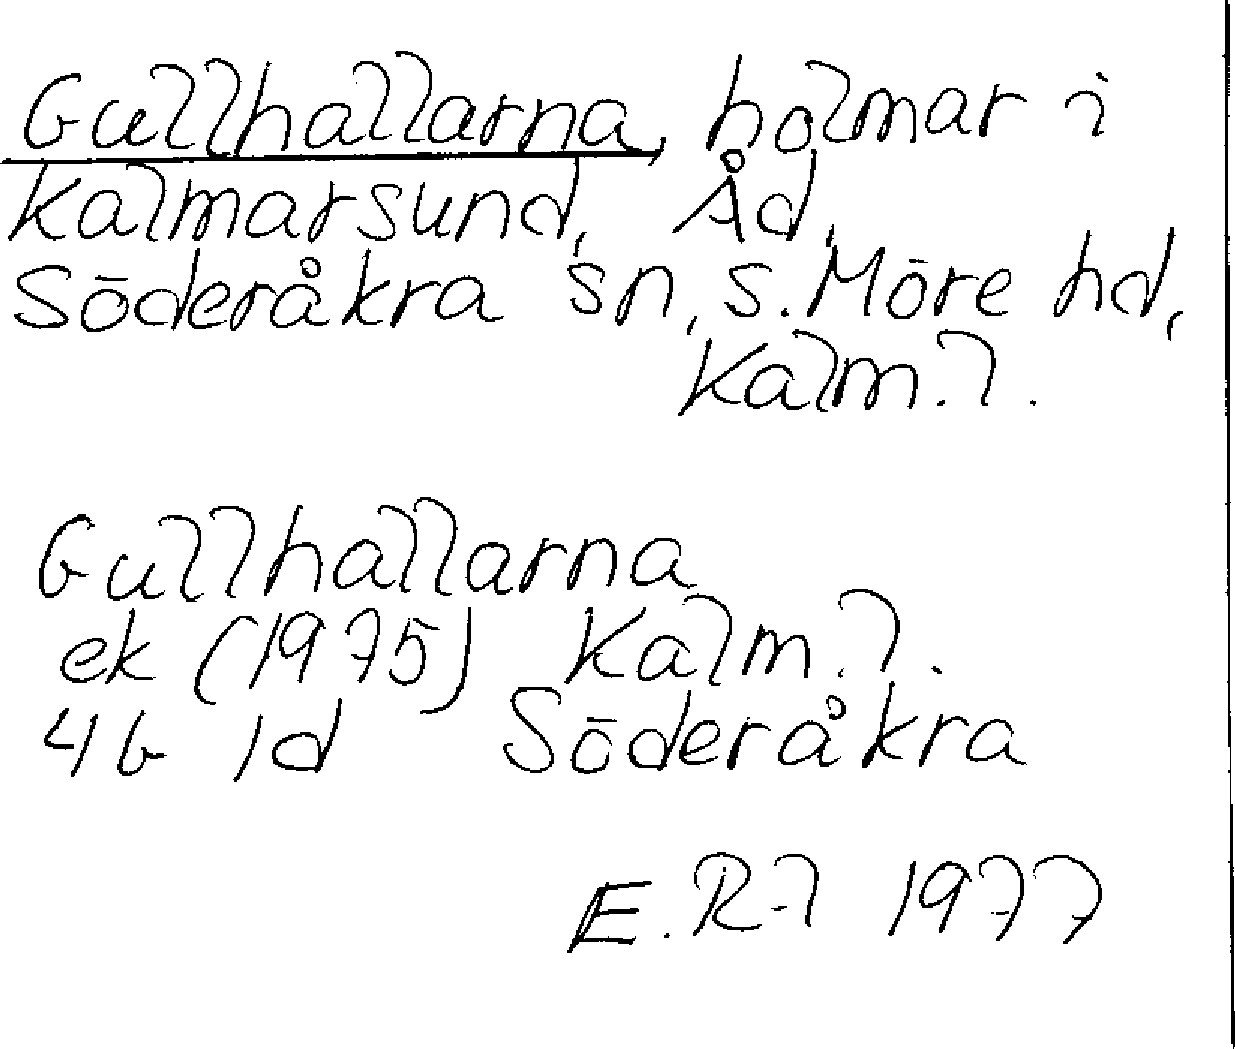 Gullhallarna, holmar i
Kalmarsund, Åd,
Söderåkra sn, S. Möre hd,
Kalm. l.
Gullhallarna
ek (1975) Kalm. l.
4G 1d Söderåkra
E. R-l 1977